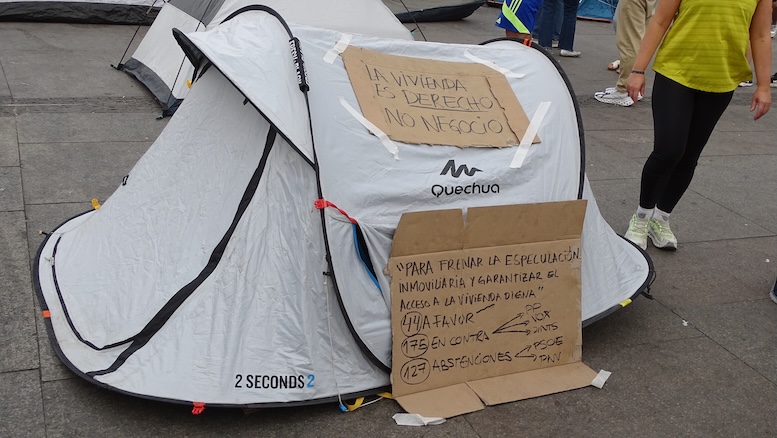 LA VIVIENDA
ES DERECHO
NO NEGOCIO
Quechua
"PARA FRENAR LA ESPECULACIÓN
INMOVILIARIA Y GARANTIZAR EL
ACCESO A LA VIVIENDA DIGNA"
44 A FAVOR
PP
VOX
175 EN CONTRA
JUNTS
PSOE
127 ABSTENCIONES
PNV
2 SECONDS 2